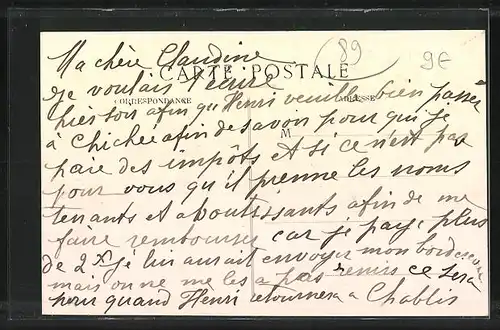 Ma chère Claudine
89
9€
CARTE POSTALE
je voulais t'écrire
CORRESPONDANCE
ADRESSE
hier soir afin qu'Henri veuille bien passer
à Chichée afin de savoir pour qui je
M
paie des impôts et si ce n'est pas
pour vous qu'il prenne les noms
tenants et aboutissants afin de me
faire rembourser car je paye plus
de 2 je lui aurait envoyer mon bordereau
mais on ne me les a pas remis ce sera
pour quand Henri retournera a Chablis